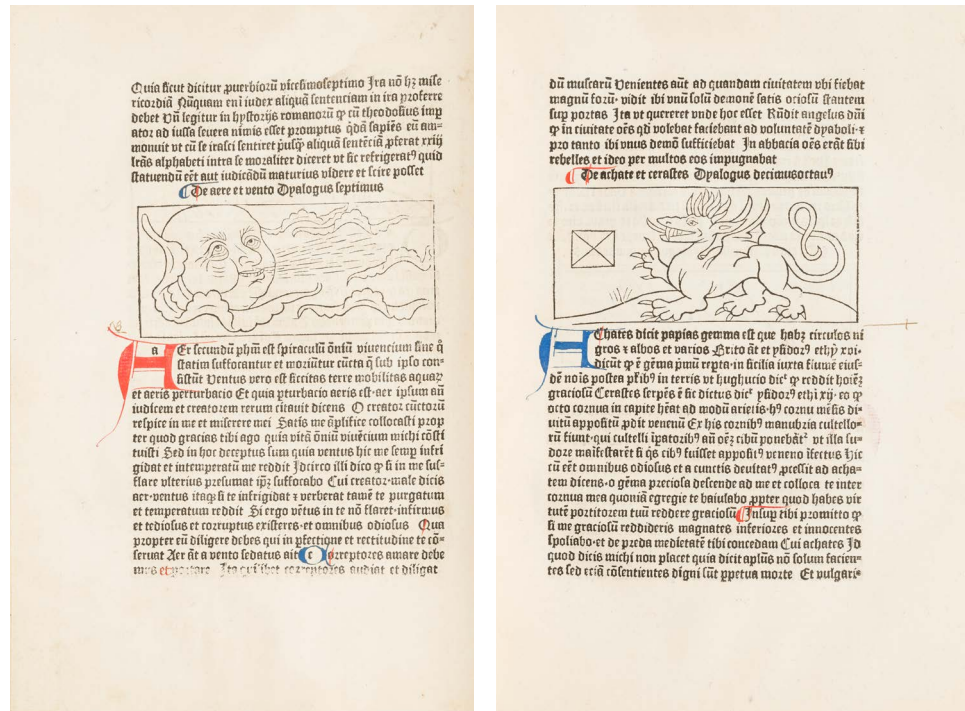 Quia sicut dicitur ꝓuerbiorū vicesimoseptimo Ira nō hꝫ mise
ricordiā Nūquam eni iudex aliquā sentenciam in ira proferre
debet Vn̄ legitur in hystorijs romanorū ꝙ cū theodosius imper
ator ad iussa seuera nimis esset promptus q̄dā sapiēs eū am-
monuit vt cū se irasci sentiret pusqȝ aliquā sentēciā ꝓferat xxiij
lrās alphabeti intra se moraliter diceret vt sic refrigerat⁹ quid
statuendū eēt aut iudicādū maturius videre et scire posset
De aere et vento Dyalogus septimus
a
Er secundū phm̄ est spiraculū om̄iū viuencium sine q̊
statim suffocantur et moriūtur cūcta q̄ sub ipso con-
sistūt Ventus vero est siccitas terre mobilitas aquaꝝ
et aeris perturbacio Et quia ꝑturbacio aeris est·aer ipsum añ
iudicem et creatorem rerum citauit dicens O creator cūctorū
respice in me et miserere mei Satis me āplifice collocasti prop
ter quod gracias tibi ago quia vitā ōniū viuēcium michi cōsti
tuisti Sed in hoc deceptus sum quia ventus hic me semp infri
gidat et intemperatū me reddit Idcirco illi dico ꝙ si in me suf-
flare vlterius presumat ipꝫ suffocabo Cui creator·male dicis
aer·ventus itaqȝ si te infrigidat ⁊ verberat tamē te purgatum
et temperatum reddit Si ergo vētus in te nō flaret·infirmus
et tediosus et corruptus existeres·et omnibus odiosus Qua
propter eū diligere debes qui in ꝑfectione et rectitudine te cō-
seruat Aer āt a vento sedatus ait c Correptores amare debe
mus et portare Ita quilibet correptores audiat et diligat
dū muscarū Venientes aūt ad quandam ciuitatem vbi fiebat
magnū forū· vidit ibi vnū solū demonē satis ociosū stantem
suꝑ portas Ita vt quereret vnde hoc esset Rn̄dit angelus dn̄i
ꝙ in ciuitate oēs qd̄ volebat faciebant ad voluntatē dyaboli·⁊
pro tanto ibi vnus demō sufficiebat In abbacia oēs erāt sibi
rebelles et ideo per multos eos impugnabat
De achate et cerastes Dyalogus decimusoctau⁹
Chates dicit papias gemma est que habꝫ circulos ni
gros ⁊ albos et varios Brito āt et ysidor⁹ ethȳ xvi·
dicūt ꝙ ē gēma pͥmū reꝑta·in sicilia iuxta fiumē eius-
dē nois postea pͥkib⁹ in terris vt hughucio dicͭ ꝙ reddit hoiēꝫ
graciosū Cerastes serpēs ē sic dictus dicͭ ysidor⁹ ethi xij· eo ꝙ
octo cornua in capite hēat ad modū arietis·h⁹ cornu mēsis di-
uitū appositū ꝓdit venenū Ex his cornib⁹ manubria cultello-
rū fiunt·qui cultelli īꝑatorib⁹ añ oēꝫ cibū ponebāt᷑ vt illa su-
dore maīfestarēt si qs cib⁹ fuisset apposit⁹ veneno īfectus Hic
cū eēt omnibus odiosus et a cunctis deuitat⁹·ꝓcessit ad acha-
tem dicens·o gēma preciosa descende ad me et colloca te inter
cornua mea quoniā egregie te baiulabo ꝓpter quod habes vir
tutē portitorem tuū reddere graciosū Insuꝑ tibi promitto ꝙ
si me graciosū reddideris magnates inferiores et innocentes
spoliabo·et de preda medietatē tibi concedam Cui achates Id
quod dicis michi non placet quia dicit apl̄us nō solum facien-
tes sed eciā cōsentientes digni sūt ꝑpetua morte Et vulgari-